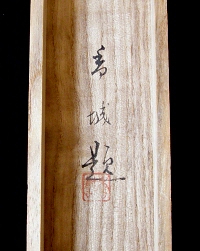 香城題